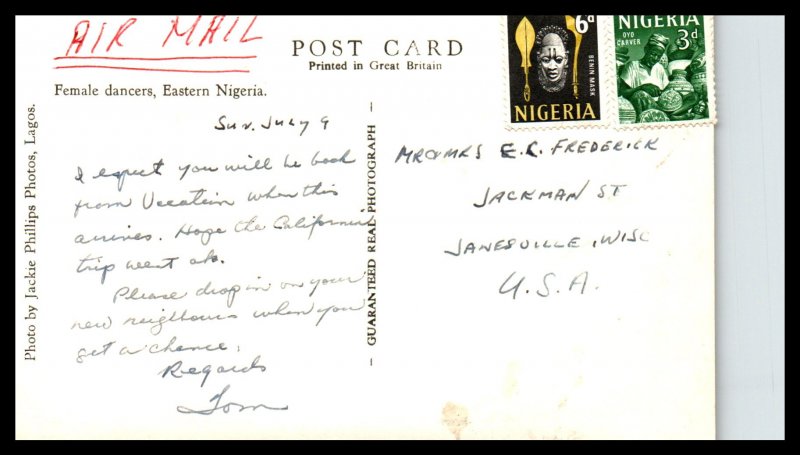 AIR MAIL
POST CARD
Printed in Great Britain
Female dancers, Eastern Nigeria.
Photo by Jackie Phillips Photos, Lagos.
Sun. July 9
I expect you will be back
from Vacation when this
arrives. Hope the California
trip went ok.
Please drop in on your
new neighbours when you
get a chance.
Regards
Tom
GUARANTEED REAL PHOTOGRAPH
6d
BENIN MASK
NIGERIA
NIGERIA
OYO
CARVER
3d
MR & MRS E.C. FREDERICK
JACKMAN ST
JANESVILLE, WISC
U.S.A.